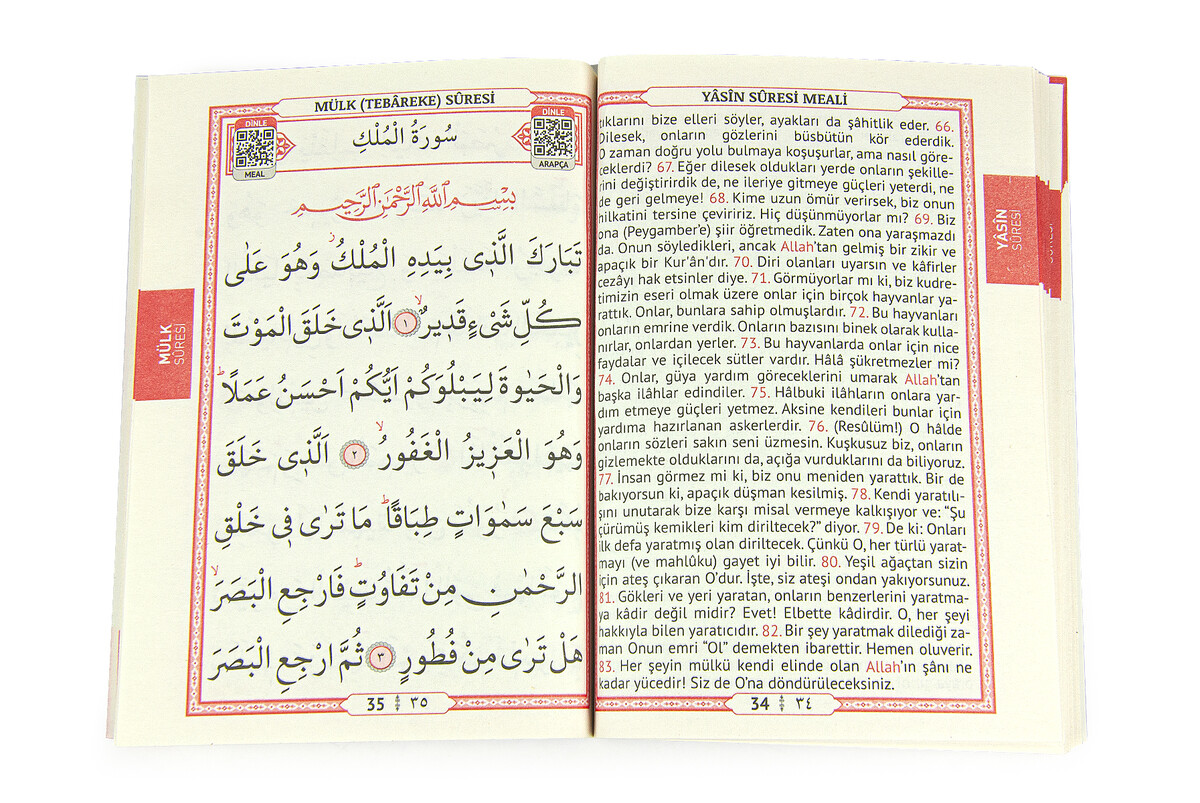 YÂSÎN SÛRESİ MEALİ
ıklarını bize elleri söyler, ayakları da şâhitlik eder. 66.
Dilesek, onların gözlerini büsbütün kör ederdik.
O zaman doğru yolu bulmaya koşuşurlar, ama nasıl göre-
ceklerdi? 67. Eğer dilesek oldukları yerde onların şekille-
rini değiştirirdik de, ne ileriye gitmeye güçleri yeterdi, ne
de geri gelmeye! 68. Kime uzun ömür verirsek, biz onun
hilkatini tersine çeviririz. Hiç düşünmüyorlar mı? 69. Biz
ona (Peygamber’e) şiir öğretmedik. Zaten ona yaraşmazdı
da. Onun söyledikleri, ancak Allah’tan gelmiş bir zikir ve
apaçık bir Kur'ân'dır. 70. Diri olanları uyarsın ve kâfirler
cezâyı hak etsinler diye. 71. Görmüyorlar mı ki, biz kudre-
timizin eseri olmak üzere onlar için birçok hayvanlar ya-
rattık. Onlar, bunlara sahip olmuşlardır. 72. Bu hayvanları
onların emrine verdik. Onların bazısını binek olarak kulla-
nırlar, onlardan yerler. 73. Bu hayvanlarda onlar için nice
faydalar ve içilecek sütler vardır. Hâlâ şükretmezler mi?
74. Onlar, güya yardım göreceklerini umarak Allah’tan
başka ilâhlar edindiler. 75. Hâlbuki ilâhların onlara yar-
dım etmeye güçleri yetmez. Aksine kendileri bunlar için
yardıma hazırlanan askerlerdir. 76. (Resûlüm!) O hâlde
onların sözleri sakın seni üzmesin. Kuşkusuz biz, onların
gizlemekte olduklarını da, açığa vurduklarını da biliyoruz.
77. İnsan görmez mi ki, biz onu meniden yarattık. Bir de
bakıyorsun ki, apaçık düşman kesilmiş. 78. Kendi yaratılı-
şını unutarak bize karşı misal vermeye kalkışıyor ve: “Şu
çürümüş kemikleri kim diriltecek?” diyor. 79. De ki: Onları
ilk defa yaratmış olan diriltecek. Çünkü O, her türlü yarat-
mayı (ve mahlûku) gayet iyi bilir. 80. Yeşil ağaçtan sizin
için ateş çıkaran O’dur. İşte, siz ateşi ondan yakıyorsunuz.
81. Gökleri ve yeri yaratan, onların benzerlerini yaratma-
ya kâdir değil midir? Evet! Elbette kâdirdir. O, her şeyi
hakkıyla bilen yaratıcıdır. 82. Bir şey yaratmak dilediği za-
man Onun emri “Ol” demekten ibarettir. Hemen oluverir.
83. Her şeyin mülkü kendi elinde olan Allah’ın şânı ne
kadar yücedir! Siz de O’na döndürüleceksiniz.
34 ٣٤
YÂSÎN
SÛRESİ
MÜLK (TEBÂREKE) SÛRESİ
DİNLE
MEAL
سُورَةُ الْمُلْكِ
DİNLE
ARAPÇA
بِسْمِ اللّٰهِ الرَّحْمٰنِ الرَّحِيمِ
تَبَارَكَ الَّذ۪ى بِيَدِهِ الْمُلْكُۘ وَهُوَ عَلٰى
كُلِّ شَىْءٍ قَد۪يرٌۙ ١ اَلَّذ۪ى خَلَقَ الْمَوْتَ
وَالْحَيٰوةَ لِيَبْلُوَكُمْ اَيُّكُمْ اَحْسَنُ عَمَلًاۜ
وَهُوَ الْعَز۪يزُ الْغَفُورُۙ ٢ اَلَّذ۪ى خَلَقَ
سَبْعَ سَمٰوَاتٍ طِبَاقًاۜ مَا تَرٰى ف۪ى خَلْقِ
الرَّحْمٰنِ مِنْ تَفَاوُتٍۜ فَارْجِعِ الْبَصَرَۙ
هَلْ تَرٰى مِنْ فُطُورٍ ٣ ثُمَّ ارْجِعِ الْبَصَرَ
35 ٣٥
MÜLK
SÛRESİ